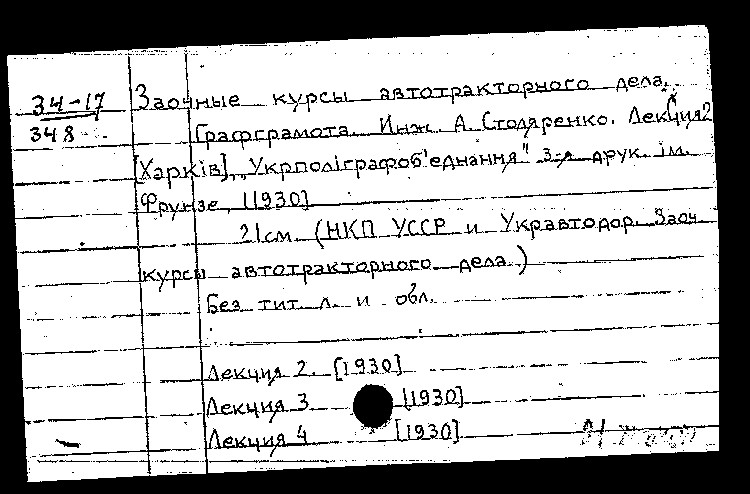 34-17
348
Заочные курсы автотракторного дела.
Графграмота. Инж. А. Столяренко. Лекция 2
[Харків], „Укрполіграфоб'еднання" 3-я друк. ім.
Фрунзе, [1930]
21см. (НКП УССР и Укравтодор. Заоч.
курсы автотракторного дела.)
Без тит. л. и обл.
Лекция 2. [1930]
Лекция 3 [1930]
Лекция 4 [1930]